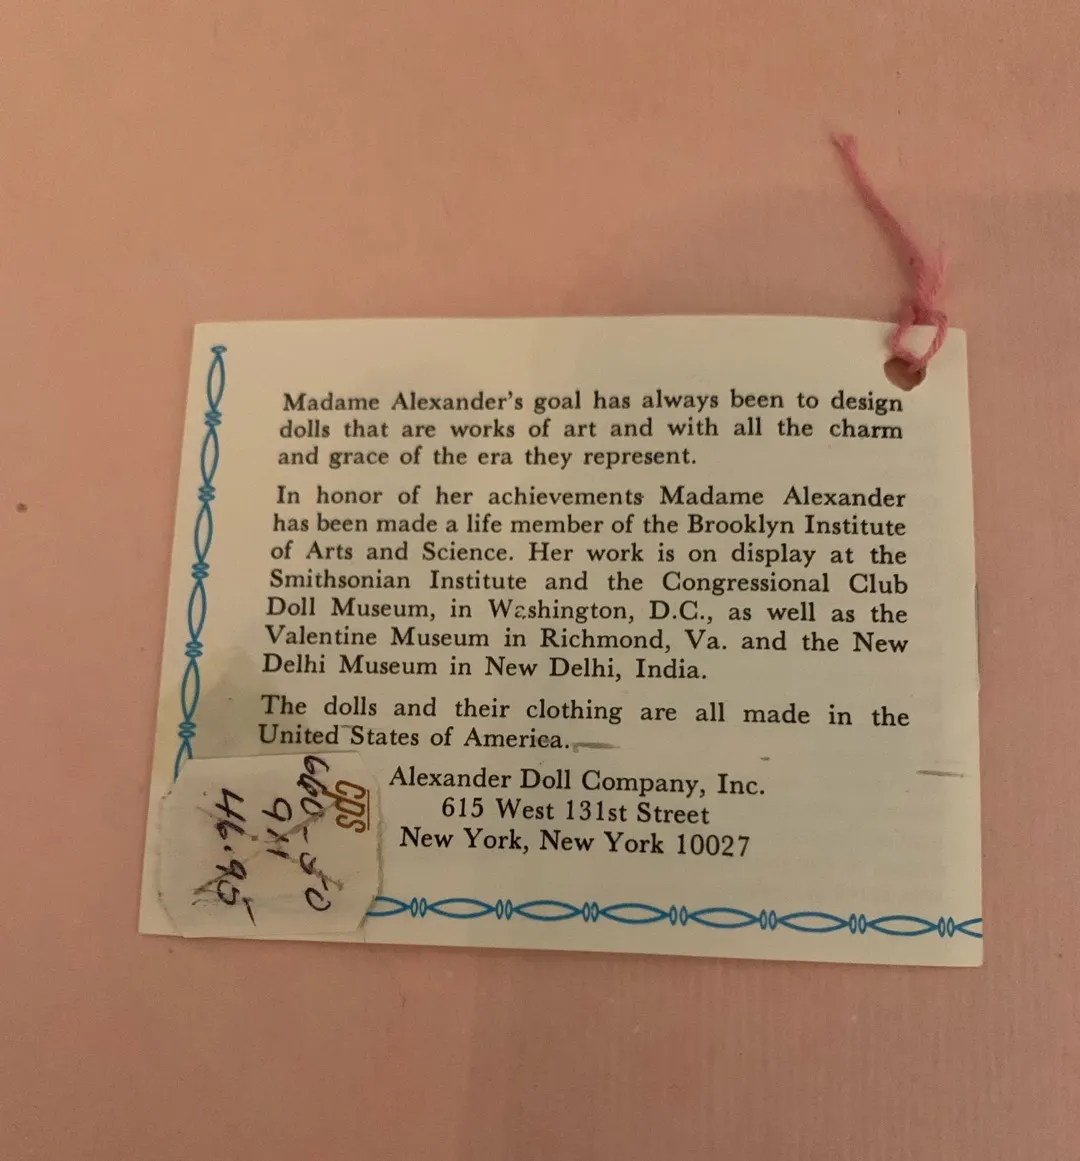 Madame Alexander's goal has always been to design
dolls that are works of art and with all the charm
and grace of the era they represent.
In honor of her achievements Madame Alexander
has been made a life member of the Brooklyn Institute
of Arts and Science. Her work is on display at the
Smithsonian Institute and the Congressional Club
Doll Museum, in Washington, D.C., as well as the
Valentine Museum in Richmond, Va. and the New
Delhi Museum in New Delhi, India.
The dolls and their clothing are all made in the
United States of America.
Alexander Doll Company, Inc.
615 West 131st Street
New York, New York 10027
cps
660-50
46.95